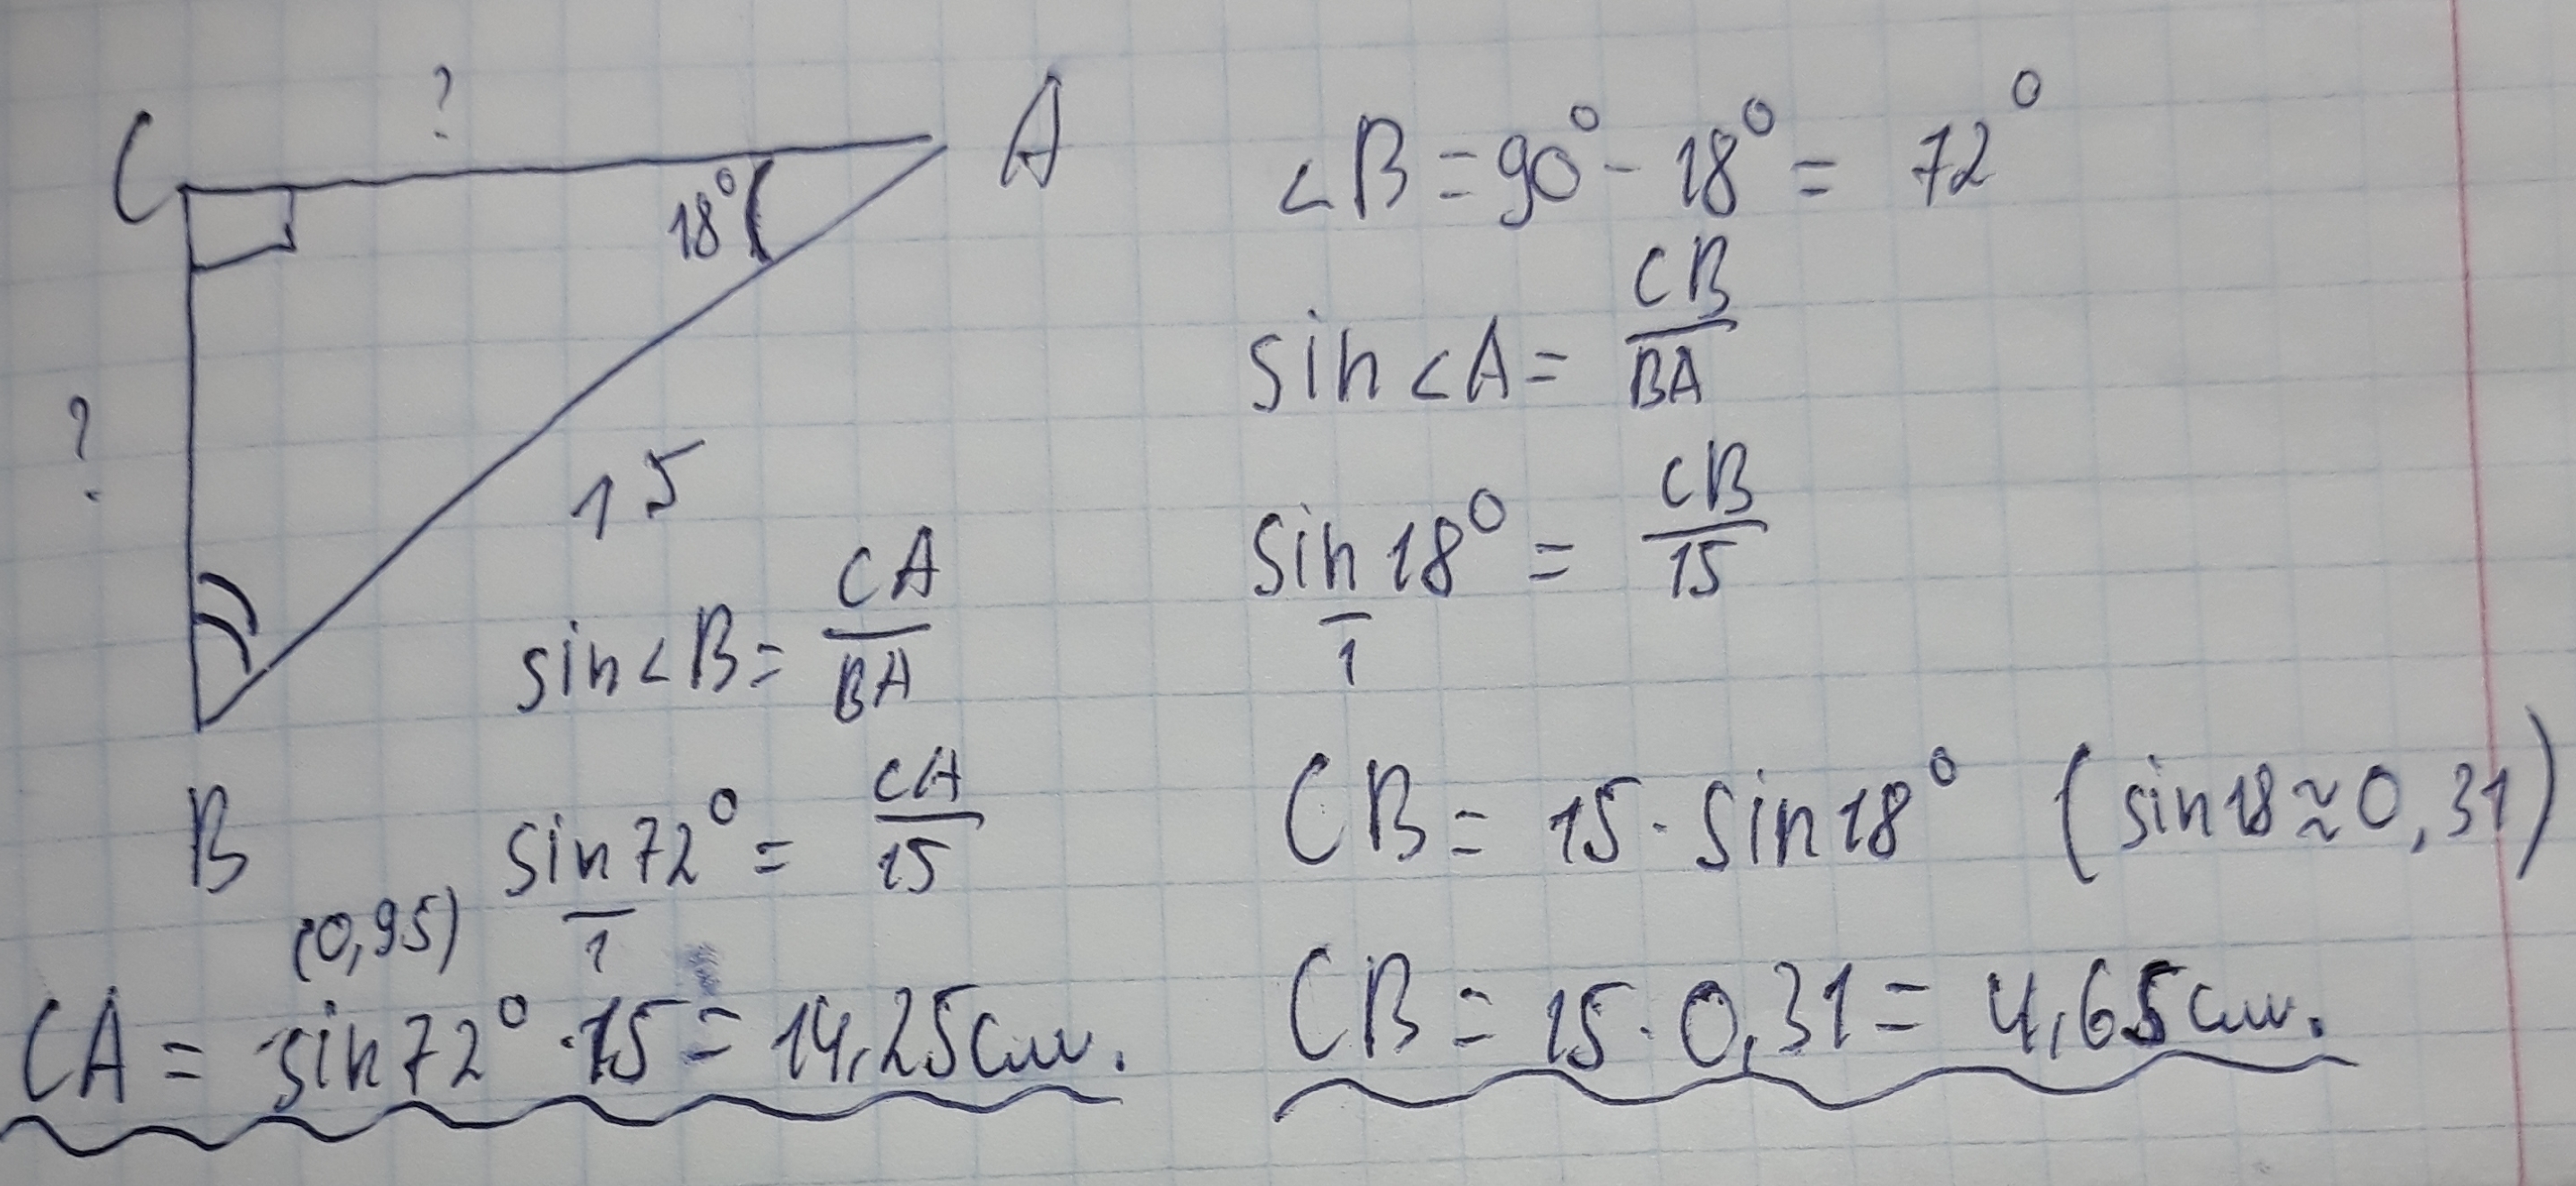 ?
C
A
18°
?
15
B
∠B = 90° - 18° = 72°
sin∠A = CB/BA
sin18°/1 = CB/15
CB = 15 · sin18° (sin18 ≈ 0,31)
CB = 15 · 0,31 = 4,65см.
sin∠B = CA/BA
sin72°/1 = CA/15
(0,95)
CA = sin72° · 15 = 14,25см.